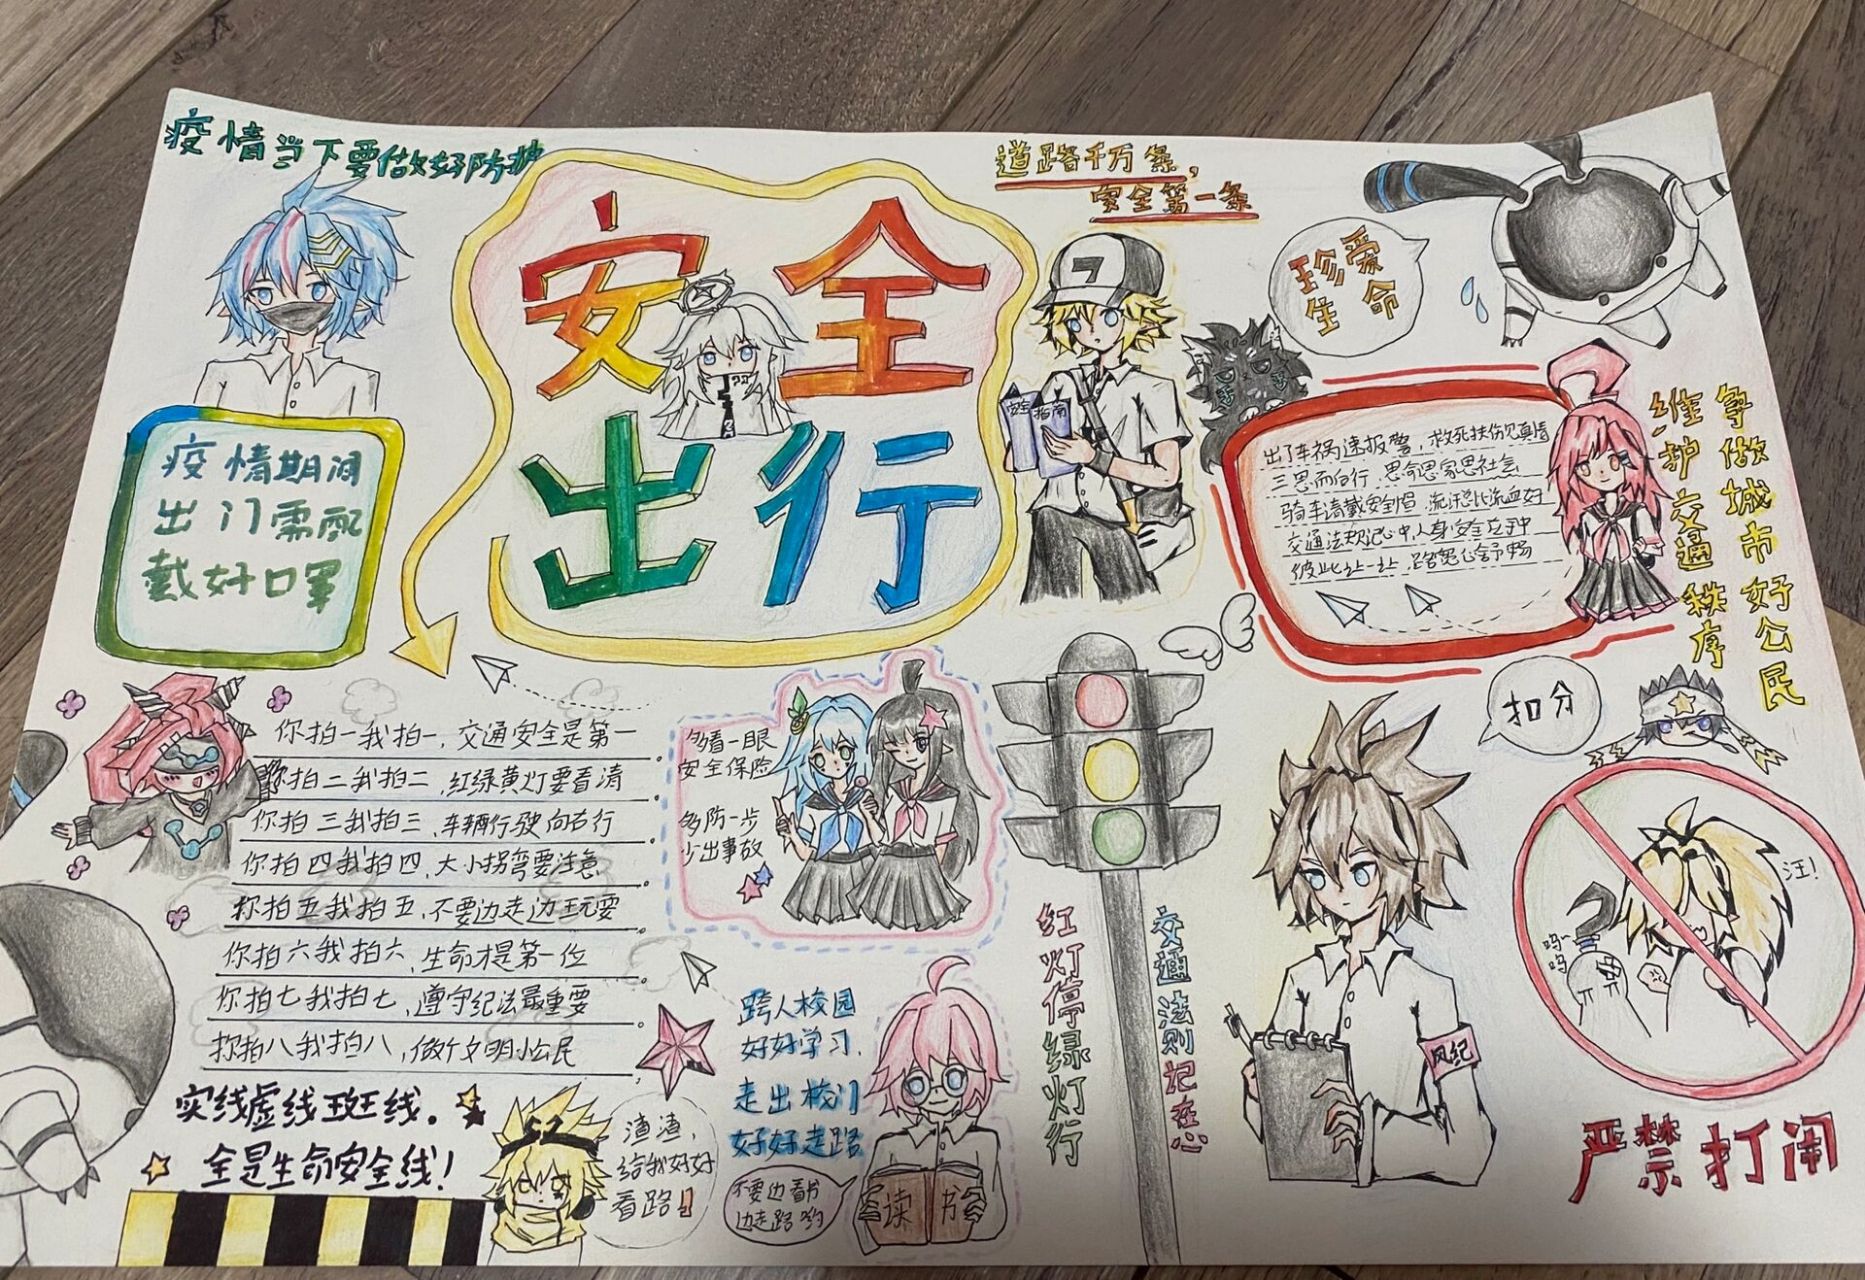 疫情当下要做好防护
安全
出行
道路千万条，
安全第一条
珍爱
生命
安全指南
疫情期间
出门需配
戴好口罩
出了车祸速报警，救死扶伤见真情
三思而后行，思命思家思社会
骑车请戴安全帽，流汗总比流血好
交通法规记心中，人身安全在手中
彼此让一让，路宽心舒畅
争做城市好公民
维护交通秩序
你拍一我拍一，交通安全是第一
你拍二我拍二，红绿黄灯要看清
你拍三我拍三，车辆行驶向右行
你拍四我拍四，大小拐弯要注意
你拍五我拍五，不要边走边玩耍
你拍六我拍六，生命才是第一位
你拍七我拍七，遵守纪法最重要
你拍八我拍八，做个文明小公民
多看一眼
安全保险
多防一步
少出事故
扣分
汪！
呜~
呜
风纪
严禁打闹
红灯停绿灯行
交通法则记在心
跨入校园
好好学习，
走出校门
好好走路
不要边看书
边走路哟
读书
实线虚线斑线。
全是生命安全线！
渣渣，
给我好好
看路！